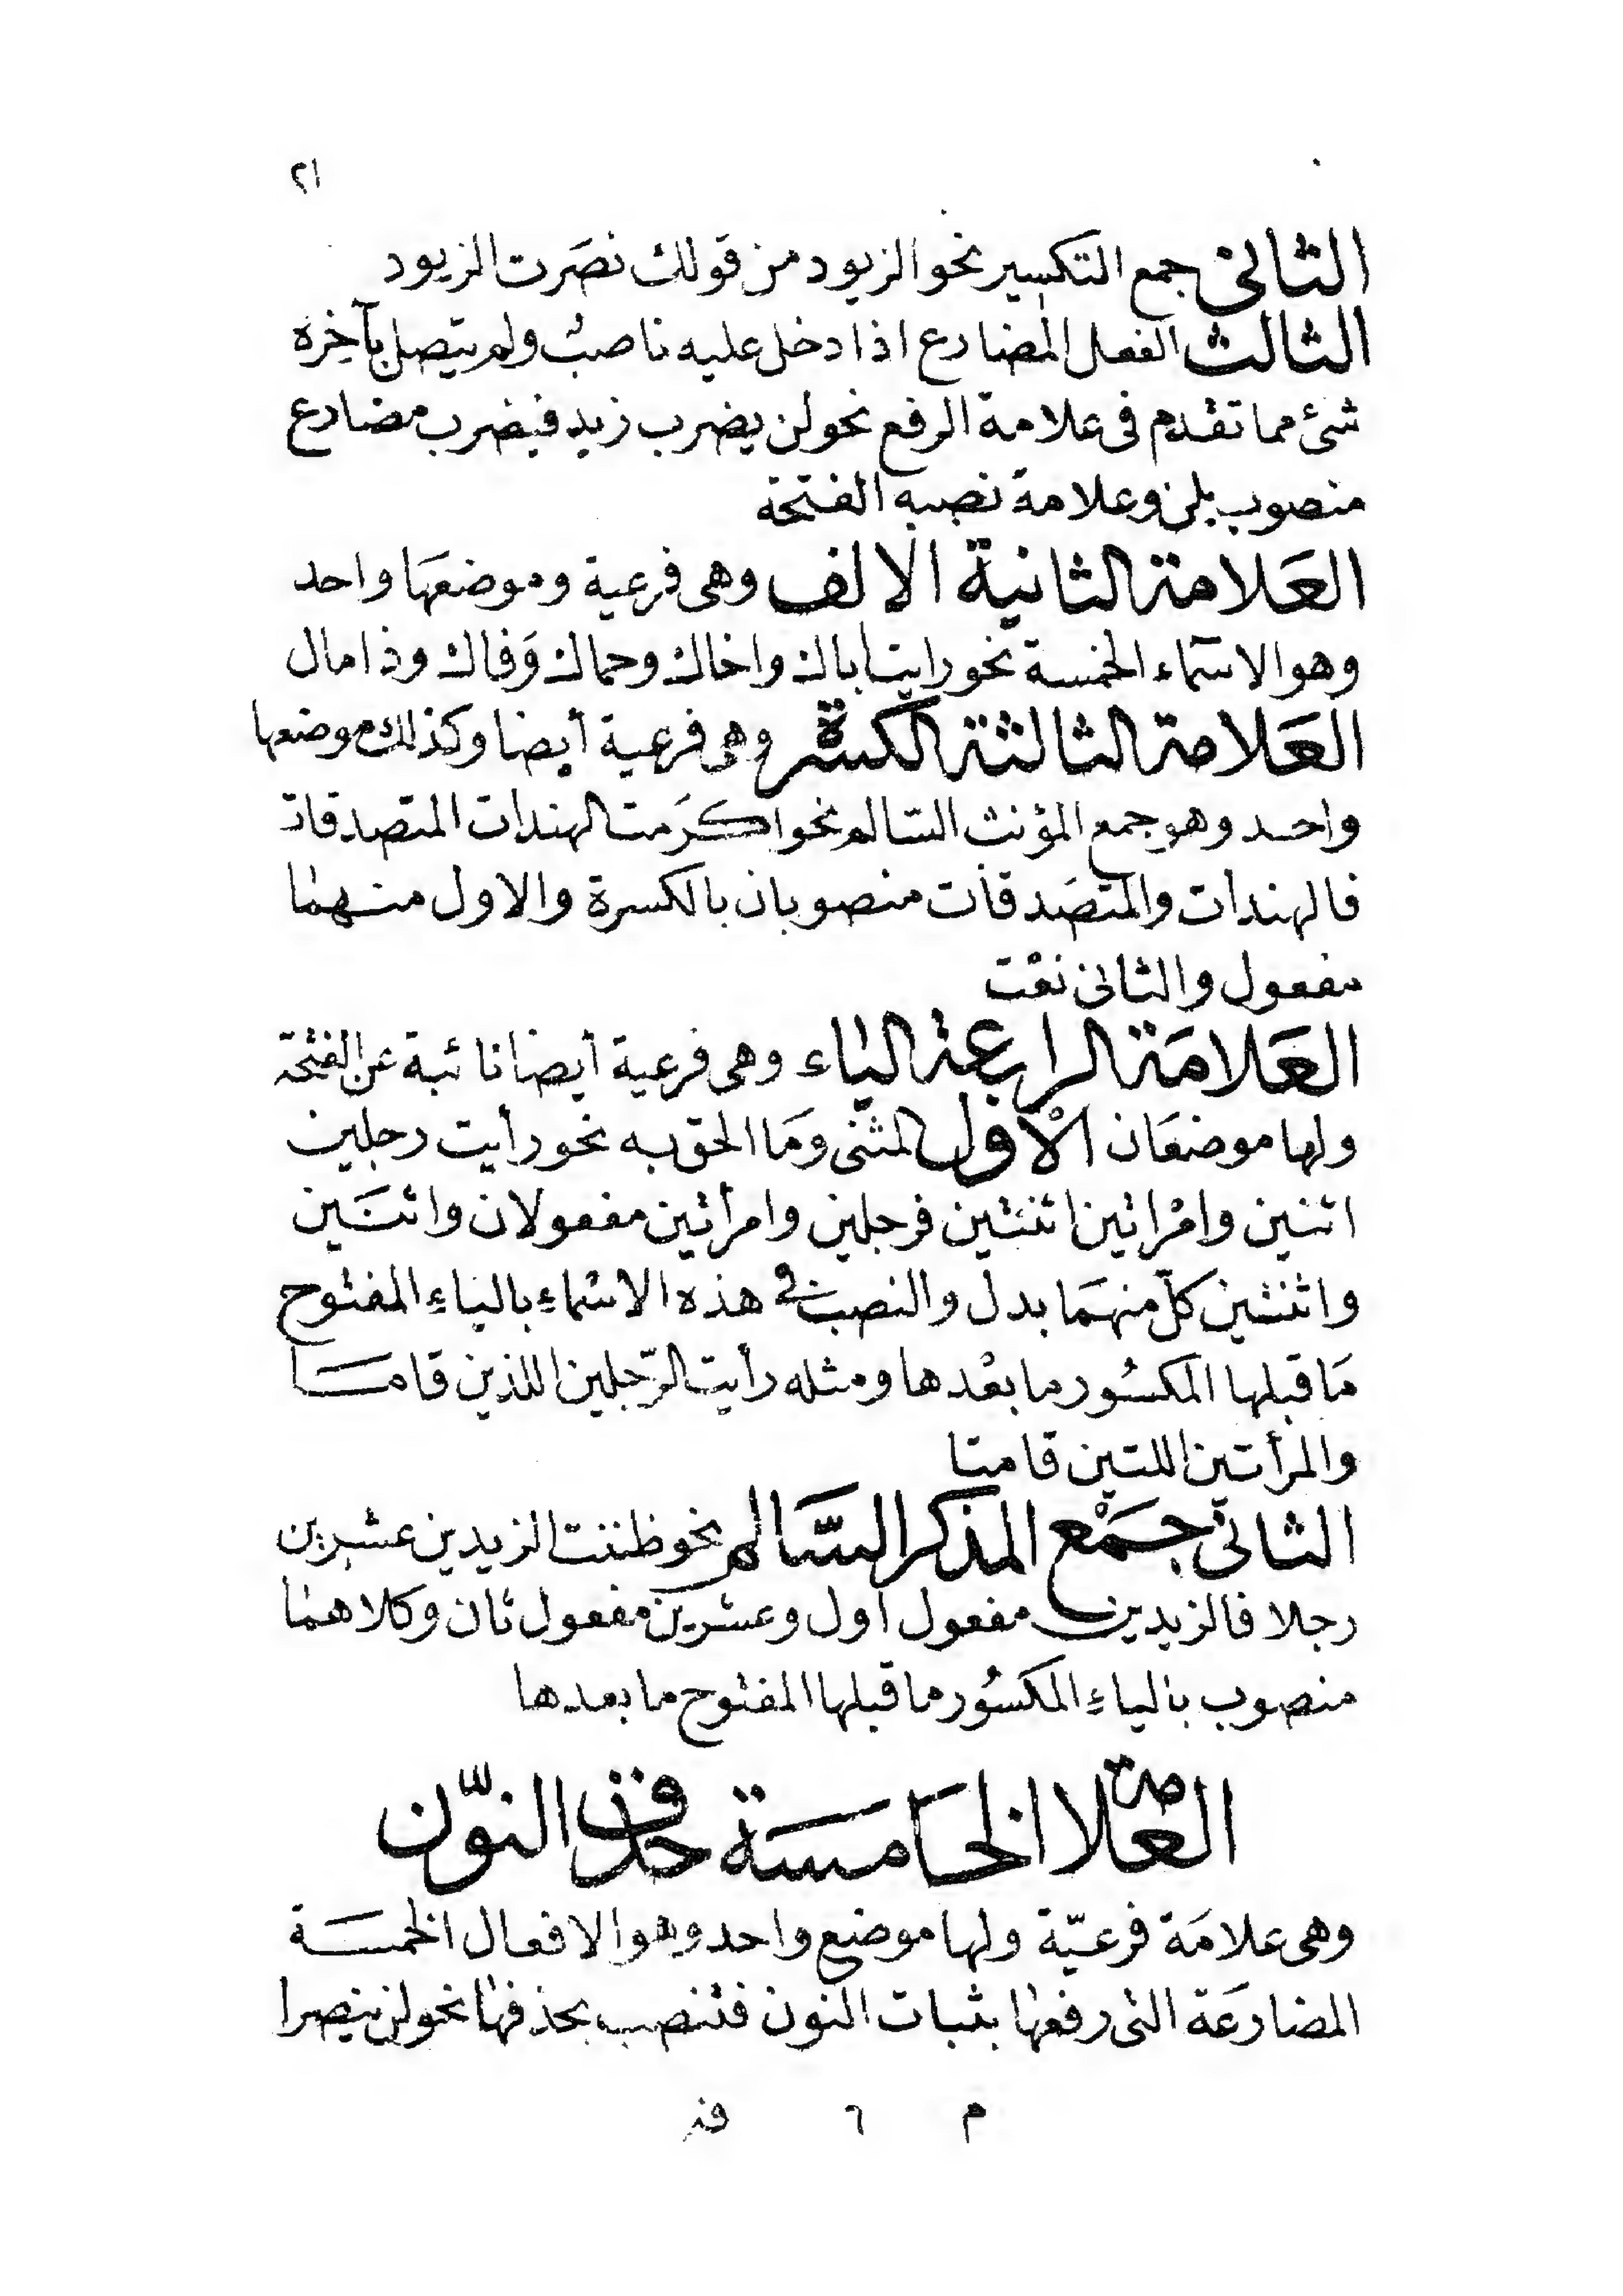 ٢١
الثانى جمع التكسير نحو الزيود من قولك نصَرت الزيود
الثالث الفعل المضارع اذا دخل عليه ناصبُ ولم يتصل بآخِره
شئ مما تقدم فى علامة الرفع نحو لن يضرب زيد فيضرب مضارع
منصوب بلن وعلامة نصبه الفتحة
العَلامة الثانية الالف وهى فرعية وموضعهَا واحد
وهو الاسماء الخمسة نحو رايت اباك واخاك وحماك وَفاك وذا مال
العَلامة الثالثة الكسرة وهى فرعية أيضا وكذلك موضعها
واحد وهو جمع المؤنث السّالم نحو اكرَمت الهندات المتصدقات
فالهندات والمتصَدقات منصوبان بالكسرة والاول منهما
مفعول والثانى نعْت
العَلامَة الرابعة الياء وهى فرعية أيضا نائبة عن الفتحة
ولها موضعَان الأول المثنى ومَا الحق به نحو رأيت رجلين
اثنين وامْراتين اثنتين فرجلين وامرأتين مفعولان واثنَين
واثنتين كلّ منهمَا بدل والنصب فى هذه الاسْماءِ بالياءِ المفتوح
مَا قبلها المكسُور ما بعْدها ومثله رأيت الرّجلين اللذين قامَا
والمرأتين اللتين قامتا
الثانى جمْع المذكر السَّالم نحو ظننت الزيدين عشرين
رجلا فالزيدين مفعول اول وعشرين مفعول ثان وكلاهما
منصوب بالياءِ المكسُور ما قبلها المفتوح ما بعدها
العَلامة الخامسَة حذف النّون
وهى علامَة فرعيّة ولها موضع واحد وهو الافعال الخمسَة
المضارعَة التى رفعها بثبات النون فتنصب بحذفها نحو لن ينصرا
م ٦ فن